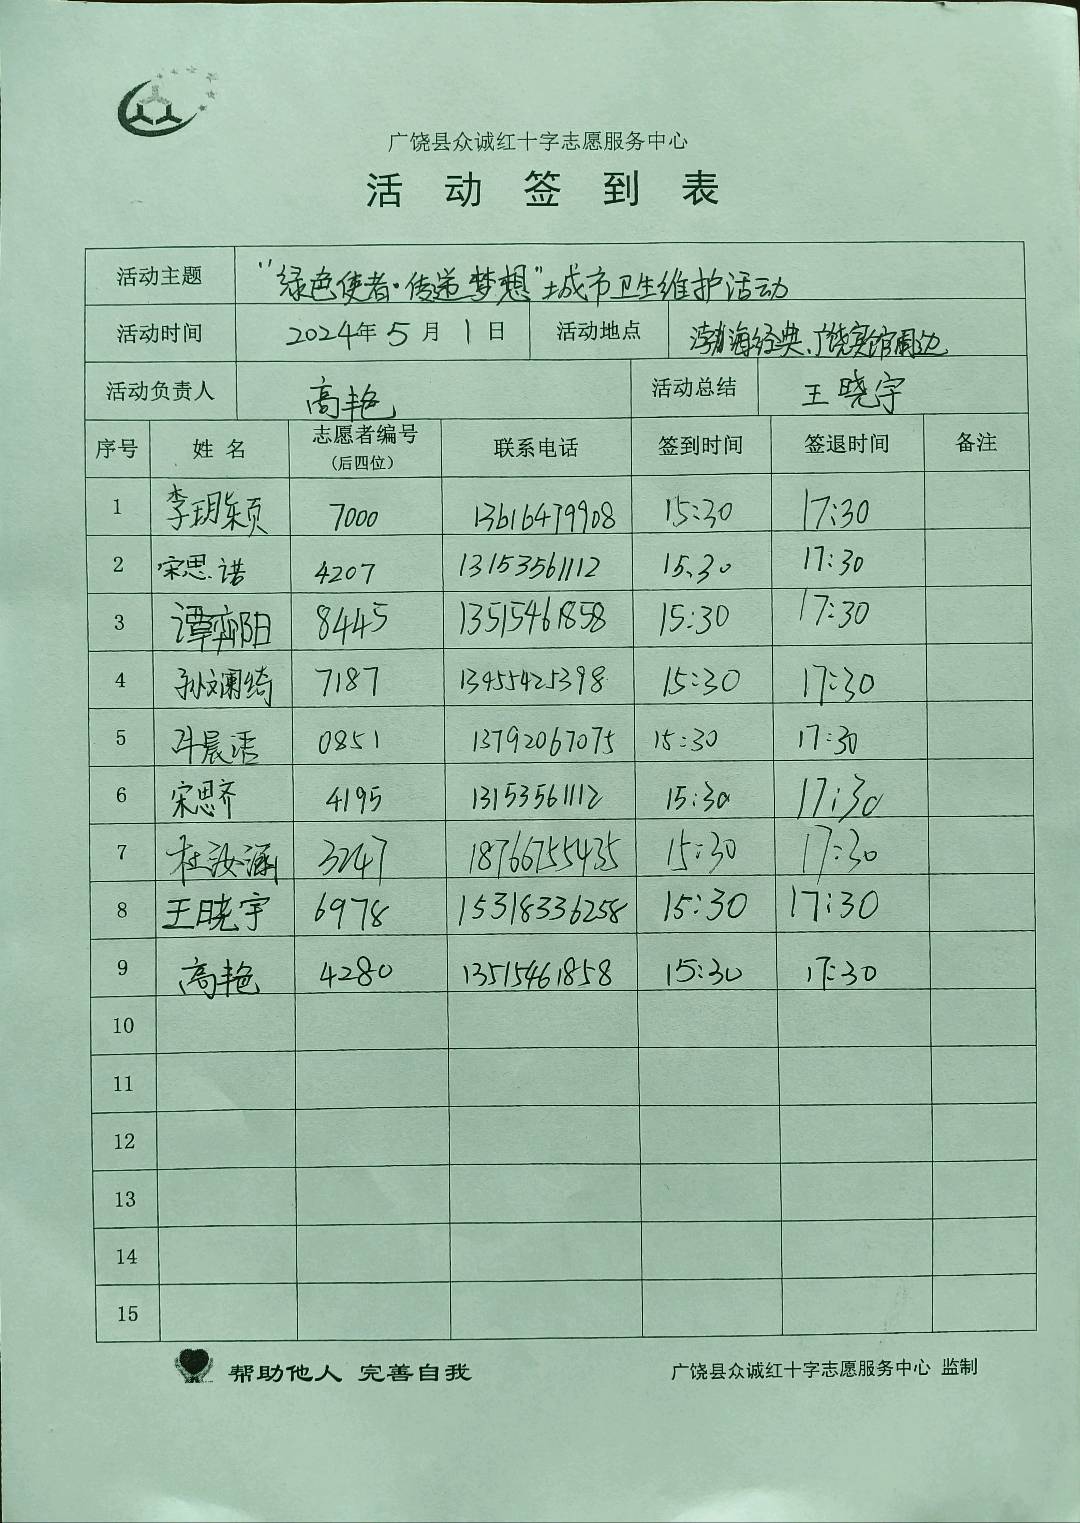 广饶县众诚红十字志愿服务中心
活动签到表
活动主题 “绿色使者·传递梦想”城市卫生维护活动
活动时间 2024年5月1日 活动地点 渤海经典、广饶宾馆周边
活动负责人 高艳 活动总结 王晓宇
序号 姓名 志愿者编号（后四位） 联系电话 签到时间 签退时间 备注
1 李玥颖 7000 13616479908 15:30 17:30
2 宋思诺 4207 13153561112 15:30 17:30
3 谭弈阳 8445 13515461858 15:30 17:30
4 孙文澜绮 7187 13455425398 15:30 17:30
5 晨语 0851 13792067075 15:30 17:30
6 宋思齐 4195 13153561112 15:30 17:30
7 杜汝涵 3247 18766755435 15:30 17:30
8 王晓宇 6978 15318336258 15:30 17:30
9 高艳 4280 13515461858 15:30 17:30
10
11
12
13
14
15
帮助他人 完善自我 广饶县众诚红十字志愿服务中心 监制